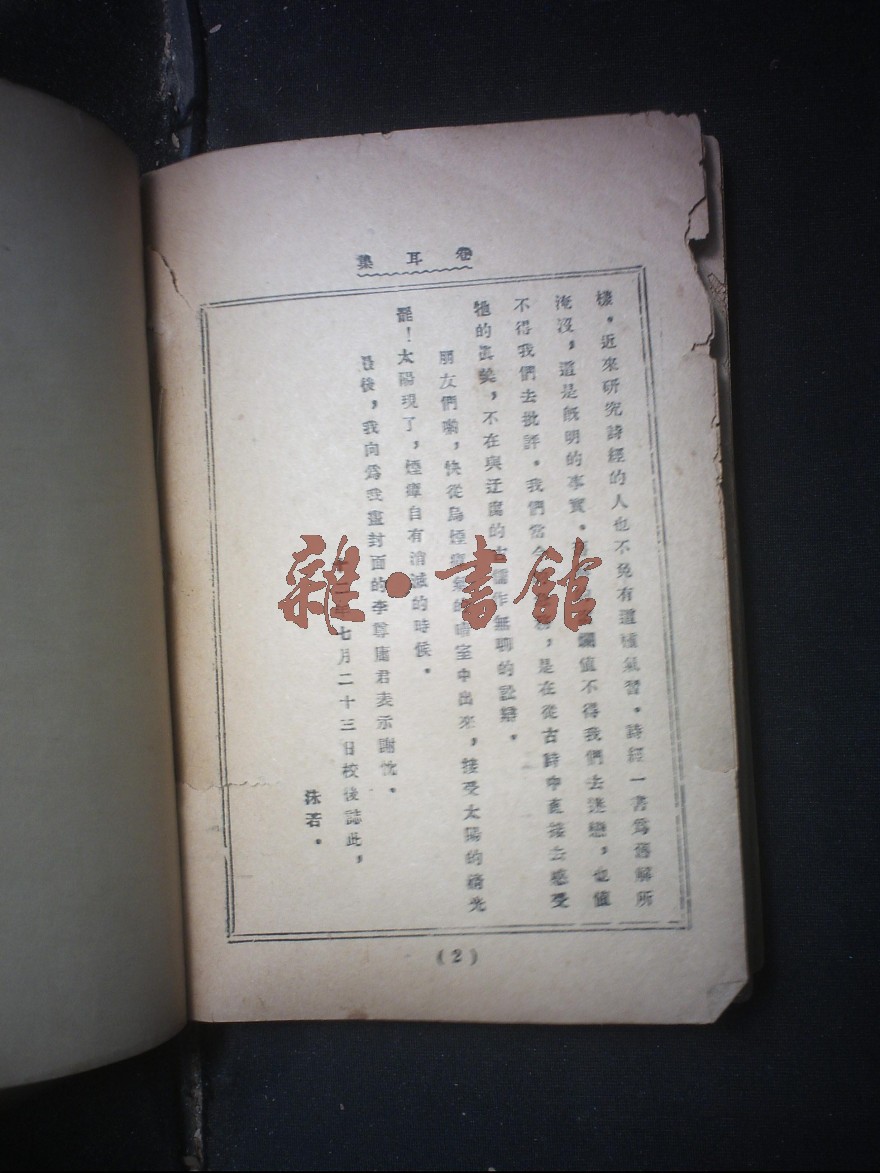 卷耳集
樣。近來研究詩經的人也不免有這種氣習。詩經一書爲舊解所
淹沒，這是既明的事實。爛值不得我們去迷戀，也值
不得我們去批評。我們當今，是在從古詩中直接去感受
牠的眞美，不在與迂腐的古儒作無聊的訟辯。
朋友們喲，快從烏煙瘴氣的暗室中出來，接受太陽的清光
罷！太陽現了，煙瘴自有消滅的時候。
最後，我向爲我畫封面的李尊庸君表示謝忱。
七月二十三日校後誌此，
沫若。
(2)
雜·書館